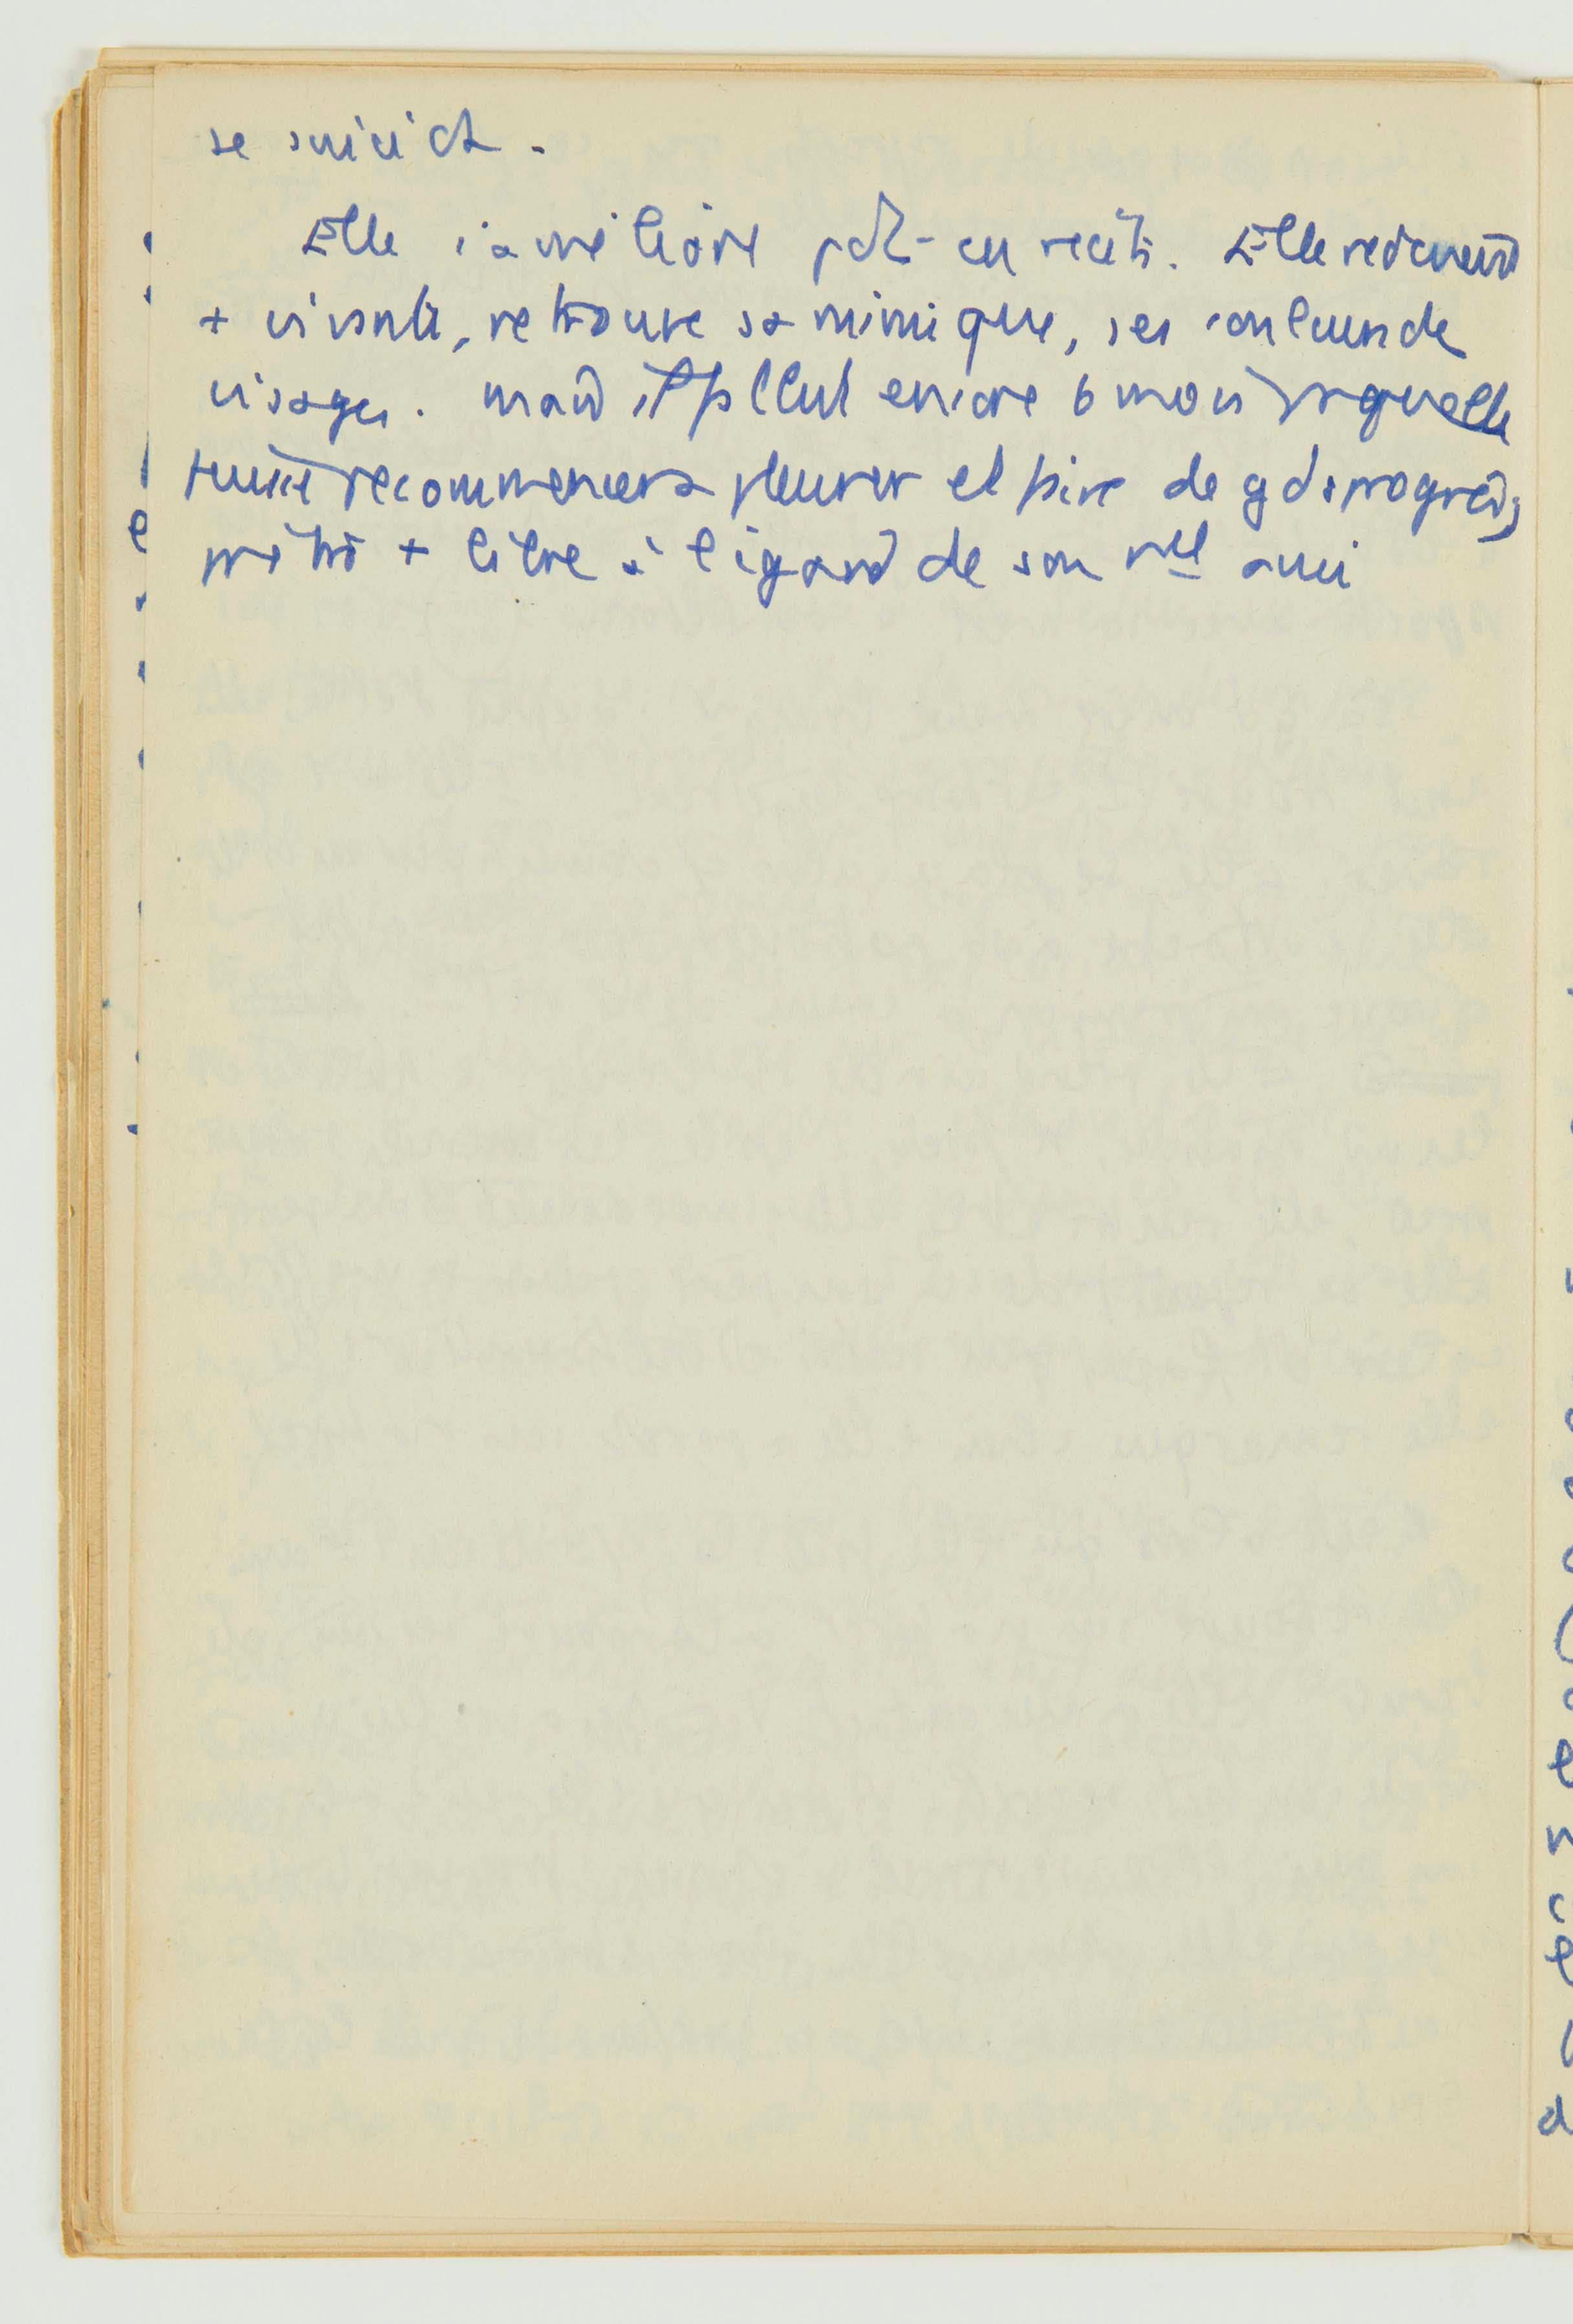 se suicide.
Elle s'améliore pdt ces récits. Elle redevient
+ vivante, retrouve sa mimique, ses couleurs de
visage. mais il fallut encore 6 mois pr qu'elle
recommencera pleurer et faire de gds progrès,
+ libre à l'égard de son nel ami